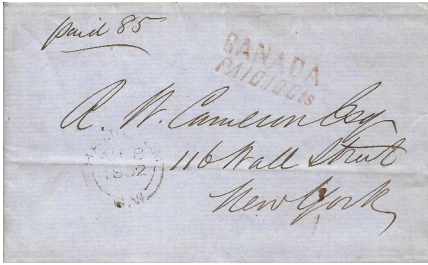 paid 85
CANADA
PAID 10 Cts
R. W. Cameron Esq
116 Wall Street
New York
AU
1852
C.W.